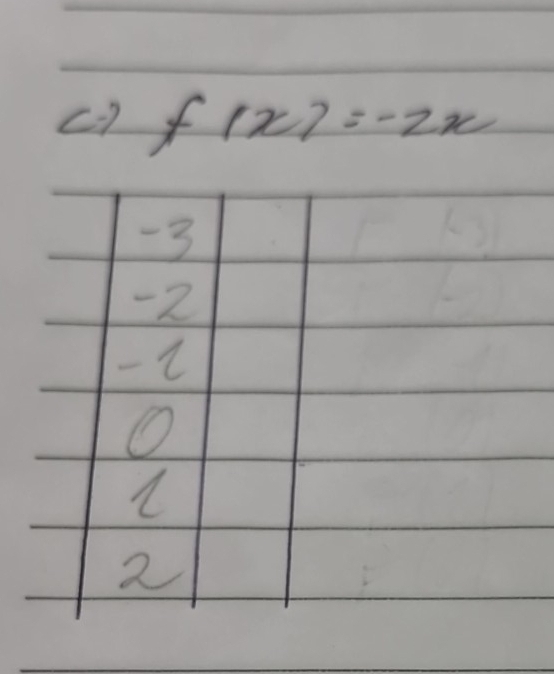 c) f(x) = -2x
-3
-2
-1
0
1
2